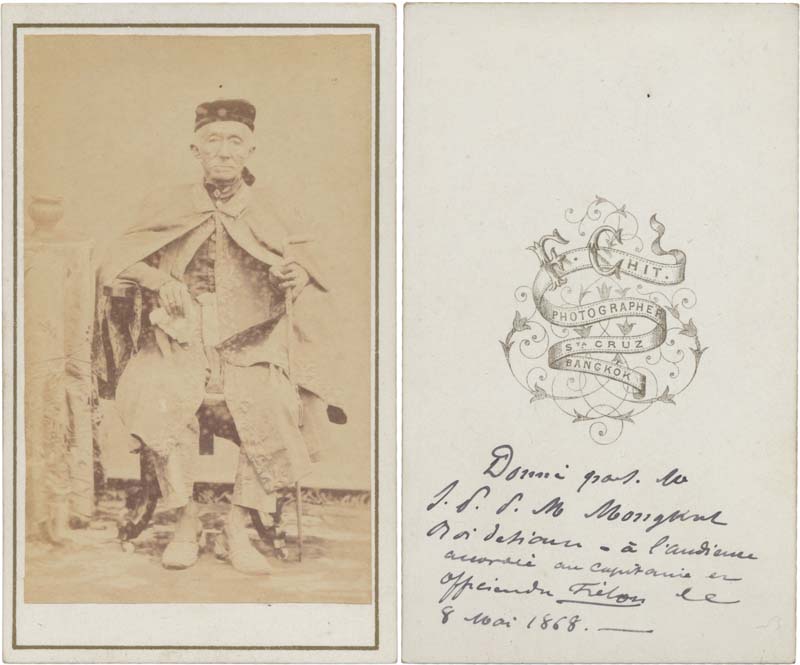 F. CHIT.
PHOTOGRAPHER
STA CRUZ
BANGKOK
Donné par le
S. P. P. M Mongkut
Roi de Siam - à l'audience
accordée au capitaine et
officiers du Frélon le
8 Mai 1868. —